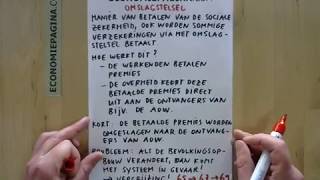 OMSLAGSTELSEL
MANIER VAN BETALEN VAN DE SOCIALE
ZEKERHEID, OOK WORDEN SOMMIGE
VERZEKERINGEN VIA HET OMSLAG-
STELSEL BETAALT
HOE WERKT DIT?
- DE WERKENDEN BETALEN
PREMIES
- DE OVERHEID KEERT DEZE
BETAALDE PREMIES DIRECT
UIT AAN DE ONTVANGERS VAN
BIJV. DE AOW.
KORT: DE BETAALDE PREMIES WORDEN
OMGESLAGEN NAAR DE ONTVAN-
GERS VAN AOW
PROBLEEM: ALS DE BEVOLKINGSOP-
BOUW VERANDERT, DAN KOMT
HET SYSTEEM IN GEVAAR!
VERGRIJZING! 65→67→69
ECONOMIEPAGINA.COM